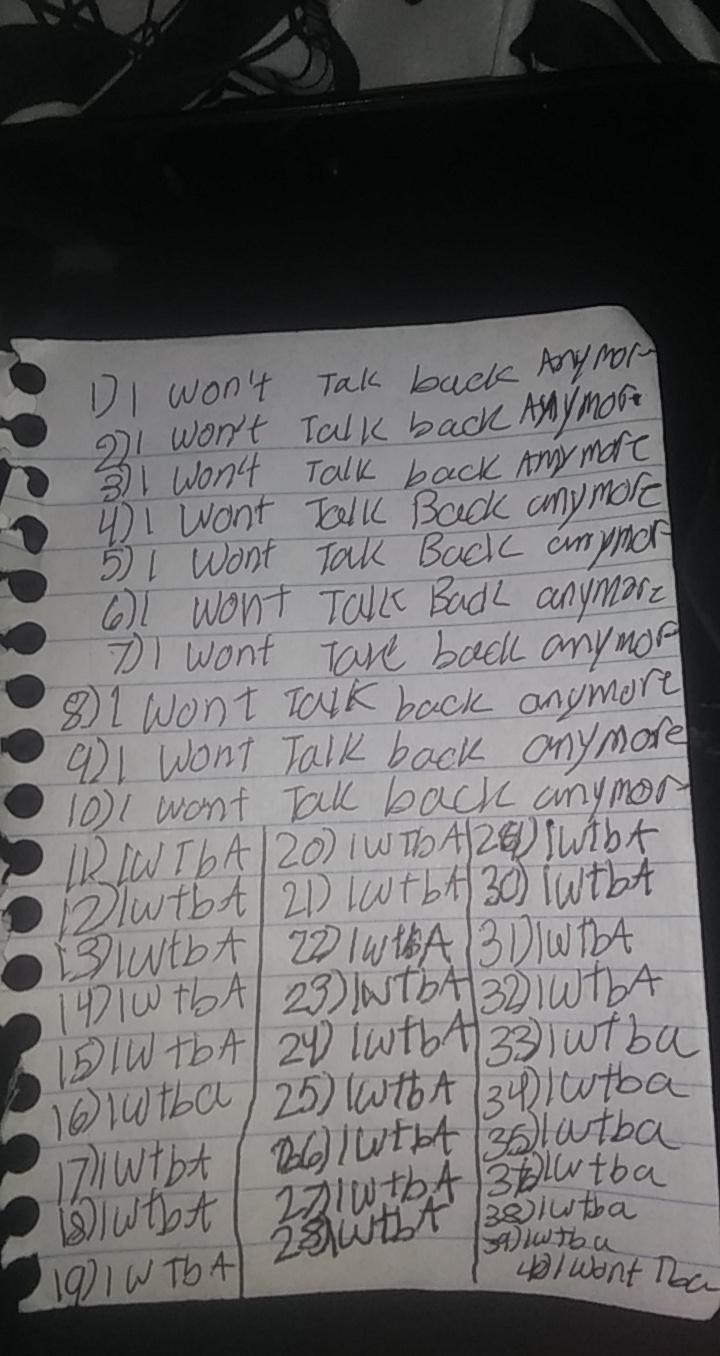 1) I won't Tak back Anymor
2) I won't Talk back Anymore
3) I Won't Talk back Anymore
4) I Wont Talk Back anymore
5) I Wont Talk Back anymor
6) I wont Talk Back anymore
7) I wont Talk back anymor
8) I wont Talk back anymore
9) I Wont Talk back anymore
10) I wont Talk back anymor
11) IWTbA
12) IwtbA
13) IWtbA
14) IWtbA
15) IWtbA
16) IWtba
17) IWtbA
18) IWtbA
19) IWTbA
20) IWTbA
21) IWtbA
22) IwtbA
23) IWtbA
24) IWtbA
25) IWtbA
26) IWtbA
27) IWtbA
28) IWtbA
29) IWtbA
30) IWtbA
31) IWtbA
32) IWtbA
33) IWtba
34) IWtba
35) IWtba
36) IWtba
38) IWtba
39) IWtba
40) I Wont Tba